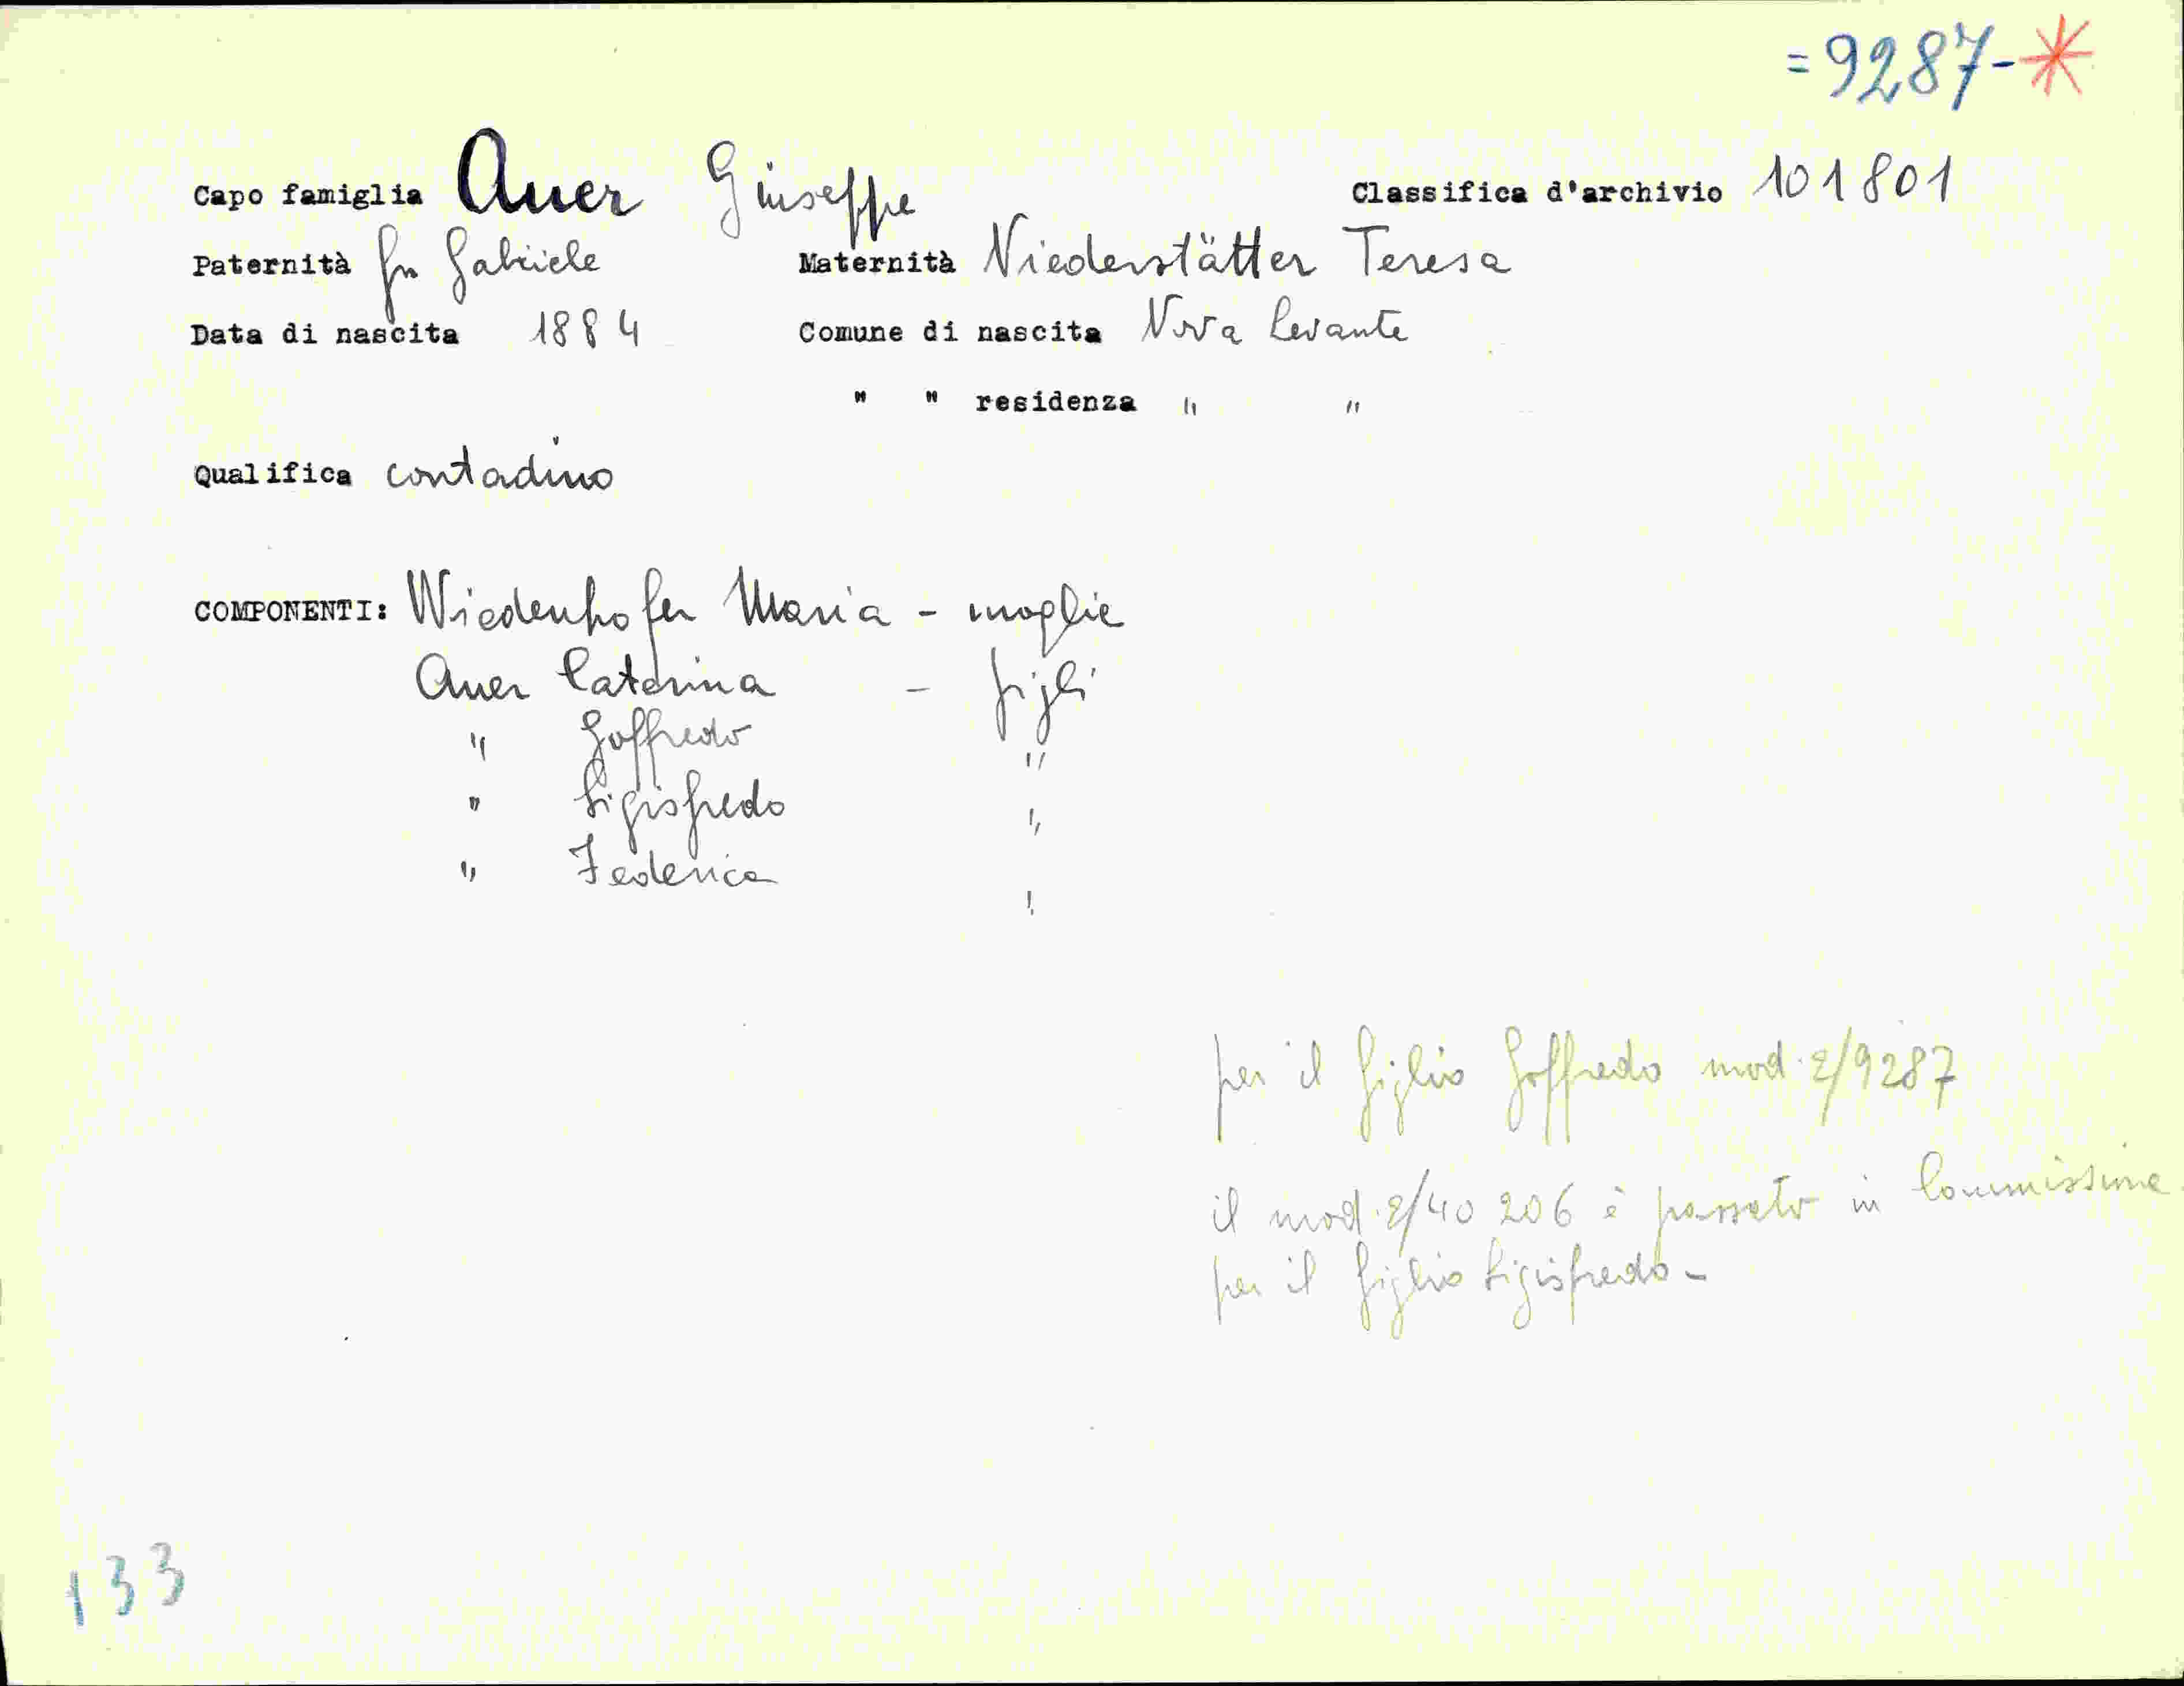 =9287-*
Capo famiglia Auer Giuseppe Classifica d'archivio 101801
Paternità fu Gabriele Maternità Niederstätter Teresa
Data di nascita 1884 Comune di nascita Nova Levante
" " residenza " "
Qualifica contadino
COMPONENTI: Wiedenhofer Maria - moglie
Auer Caterina - figli
" Goffredo "
" Sigisfredo "
" Federica "
per il figlio Goffredo mod. E/9287
il mod. E/40 206 è passato in Commissione
per il figlio Sigisfredo -
133